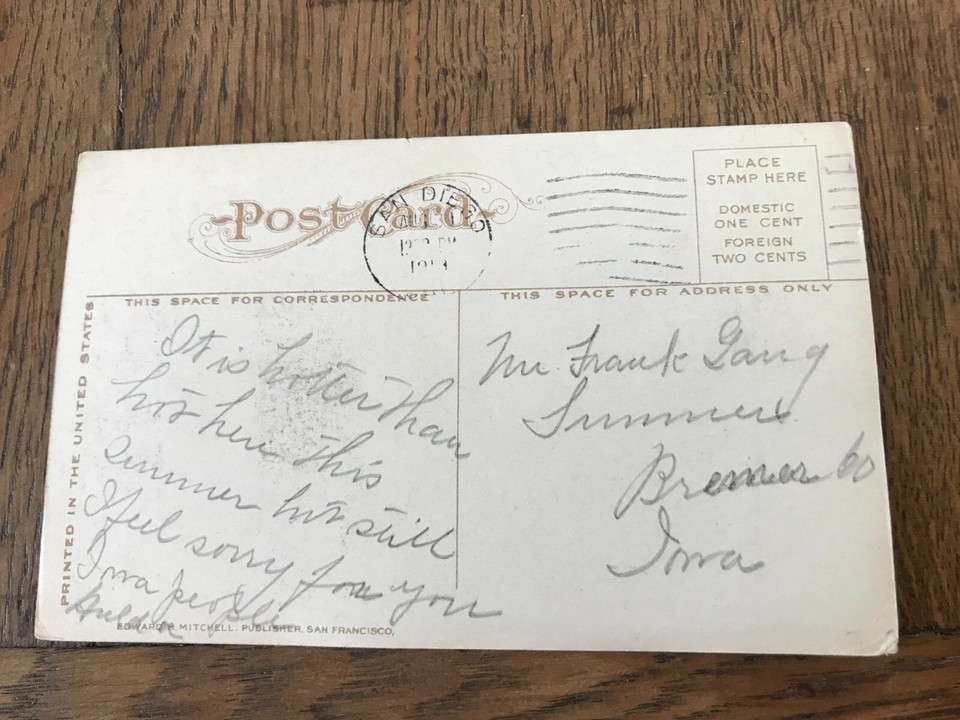 Post Card
SAN DIEGO
1230 PM
1913
PLACE
STAMP HERE
DOMESTIC
ONE CENT
FOREIGN
TWO CENTS
THIS SPACE FOR CORRESPONDENCE
THIS SPACE FOR ADDRESS ONLY
PRINTED IN THE UNITED STATES
It is hotter than
hot here this
summer but still
I feel sorry for you
Iowa people
Hulda
Mr. Frank Gang
Sumner
Bremer Co
Iowa
EDWARD H. MITCHELL, PUBLISHER, SAN FRANCISCO.